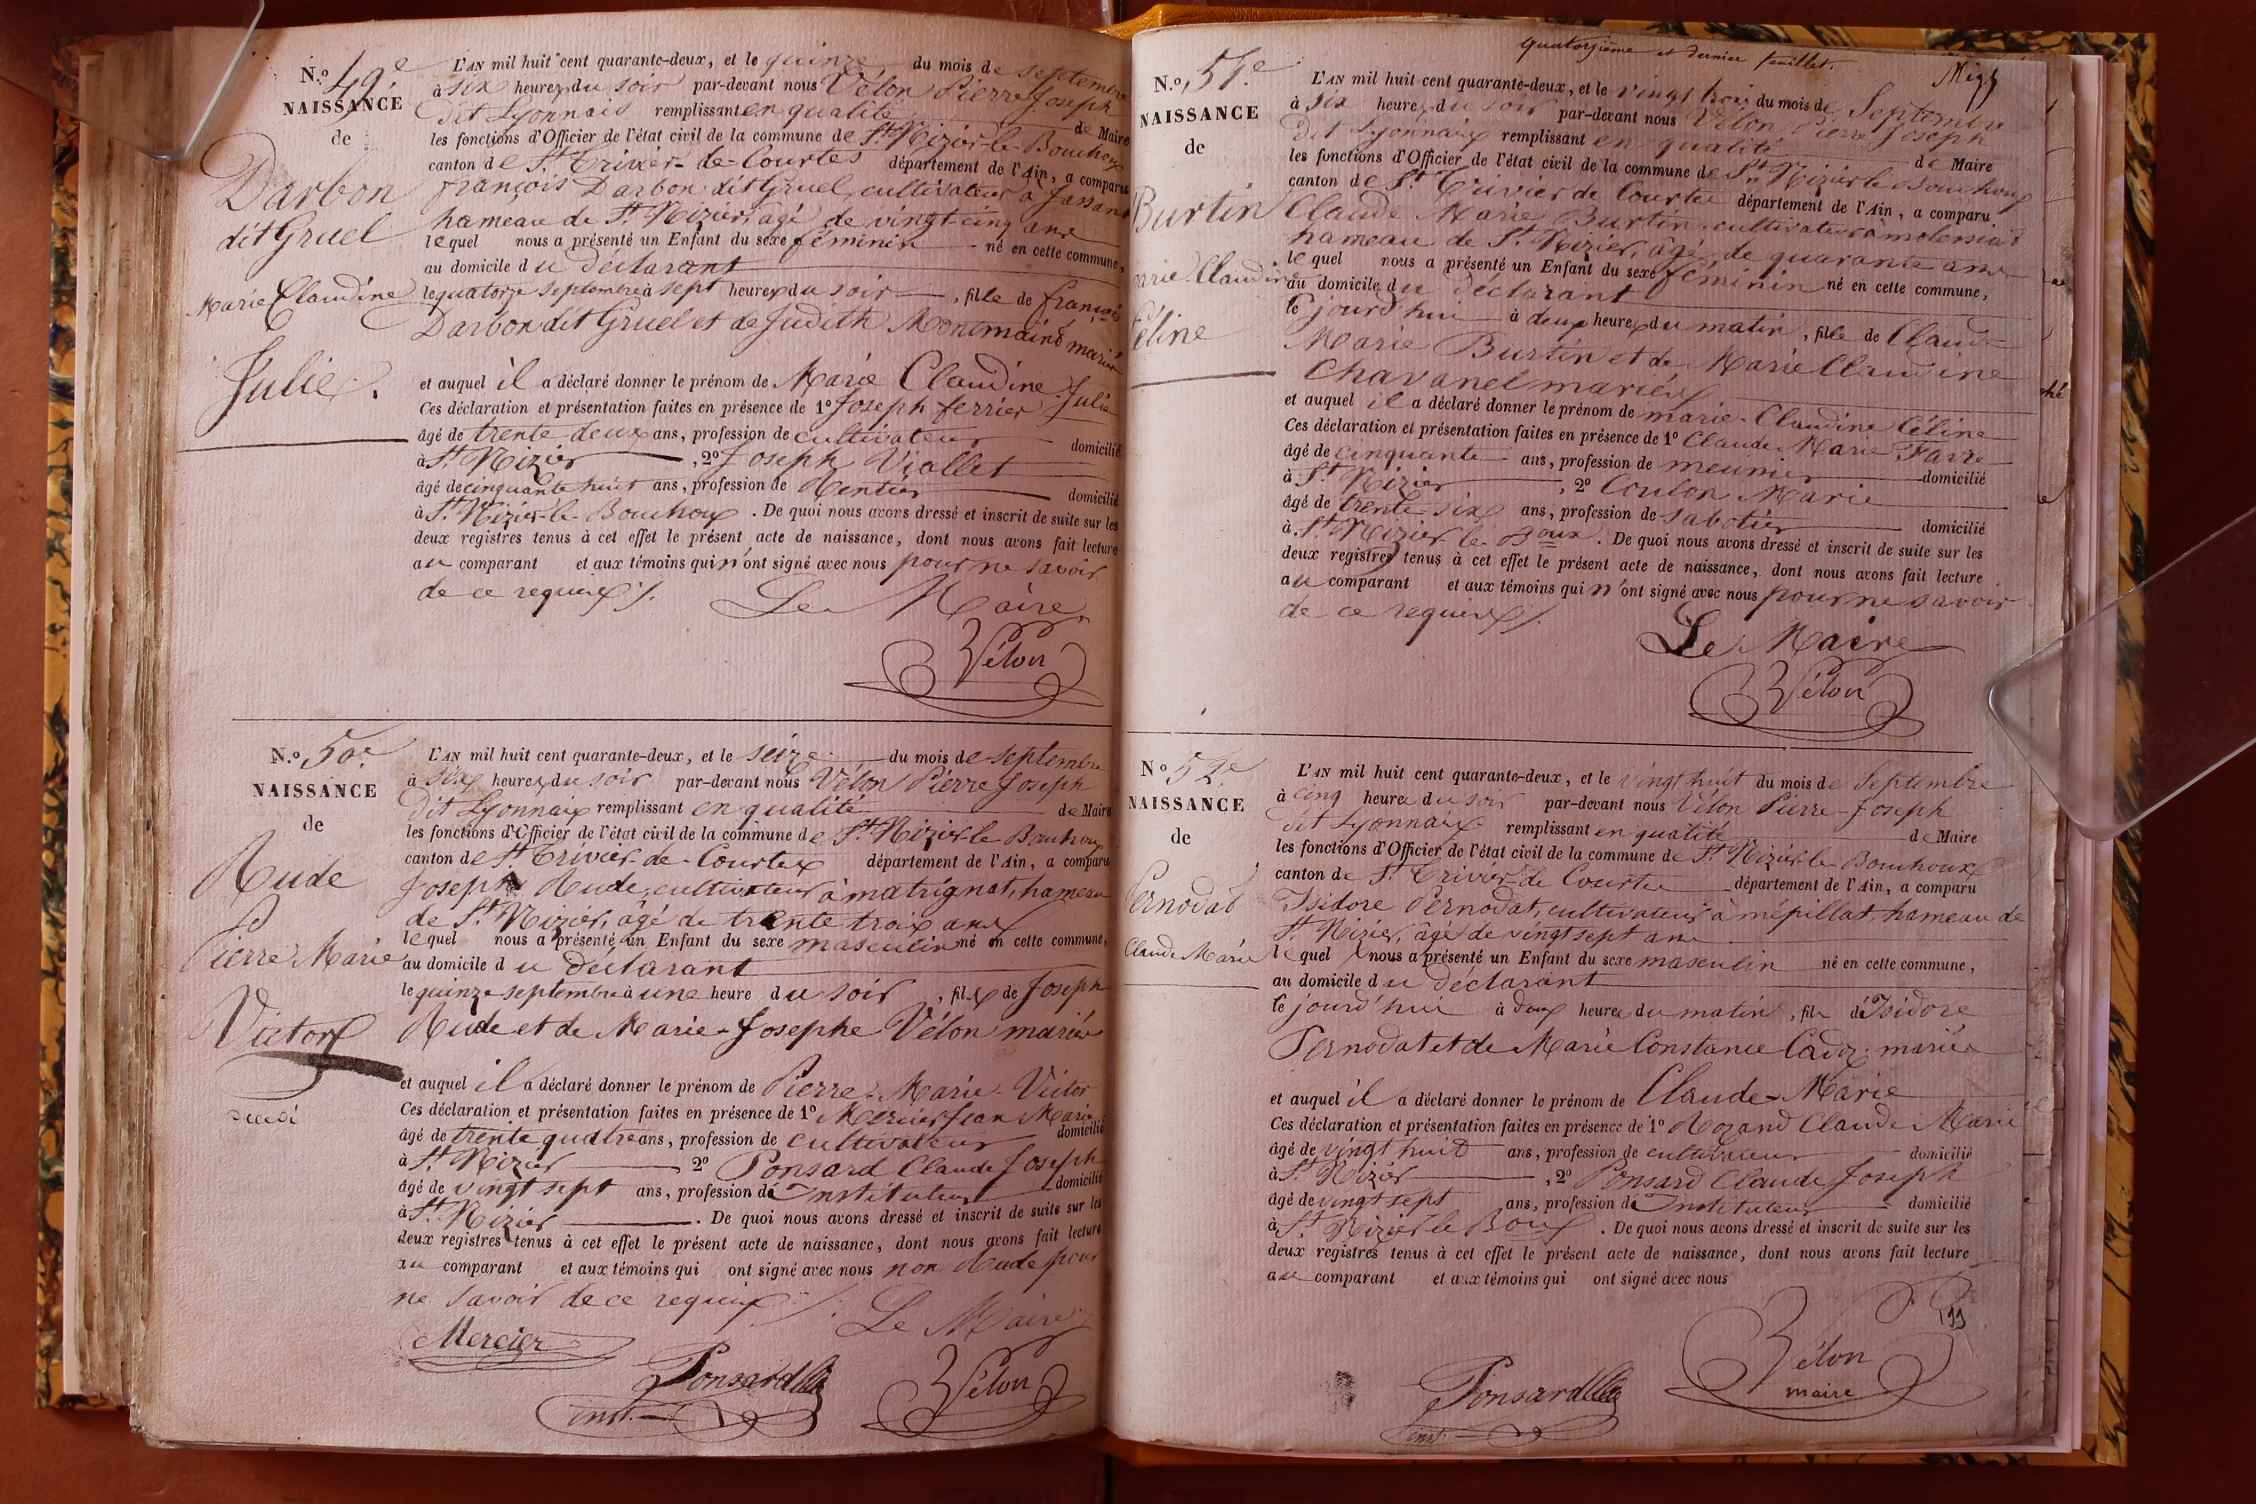 N.º 49e
NAISSANCE
de
Darbon
dit Gruel
Marie Claudine
Julie.
L'AN mil huit cent quarante-deux, et le quinze du mois de septembre
à six heures du soir par-devant nous Vélon Pierre Joseph
dit Lyonnais remplissant en qualité de Maire
les fonctions d'Officier de l'état civil de la commune de St. Nizier-le-Bouchoux
canton de St. Trivier-de-Courtes département de l'Ain, a comparu
françois Darbon dit Gruel, cultivateur à Jassans
hameau de St. Nizier, âgé de vingt cinq ans
lequel nous a présenté un Enfant du sexe féminin né en cette commune,
au domicile du déclarant
le quatorze septembre à sept heures du soir, fille de françois
Darbon dit Gruel et de Judith Montmain mariés
et auquel il a déclaré donner le prénom de Marie Claudine Julie
Ces déclaration et présentation faites en présence de 1º Joseph ferrier
âgé de trente deux ans, profession de cultivateur domicilié
à St. Nizier, 2º Joseph Viollet
âgé de cinquante huit ans, profession de Rentier domicilié
à St. Nizier-le-Bouchoux. De quoi nous avons dressé et inscrit de suite sur les
deux registres tenus à cet effet le présent acte de naissance, dont nous avons fait lecture
au comparant et aux témoins qui n'ont signé avec nous pour ne savoir
de ce requis ./.
Le Maire
Vélon
N.º 50e
NAISSANCE
de
Rude
Pierre Marie
Victor
décédé
L'AN mil huit cent quarante-deux, et le seize du mois de septembre
à six heures du soir par-devant nous Vélon Pierre Joseph
dit Lyonnaix remplissant en qualité de Maire
les fonctions d'Officier de l'état civil de la commune de St. Nizier-le-Bouchoux
canton de St. Trivier-de-Courtes département de l'Ain, a comparu
Joseph Rude, cultivateur à matrignat, hameau
de St. Nizier, âgé de trente trois ans
lequel nous a présenté un Enfant du sexe masculin né en cette commune,
au domicile du déclarant
le quinze septembre à une heure du soir, fils de Joseph
Rude et de Marie-Josephe Vélon mariés
et auquel il a déclaré donner le prénom de Pierre-Marie-Victor
Ces déclaration et présentation faites en présence de 1º Mercier Jean Marie
âgé de trente quatre ans, profession de cultivateur domicilié
à St. Nizier 2º Ponsard Claude Joseph
âgé de vingt sept ans, profession de Instituteur domicilié
à St. Nizier. De quoi nous avons dressé et inscrit de suite sur les
deux registres tenus à cet effet le présent acte de naissance, dont nous avons fait lecture
au comparant et aux témoins qui ont signé avec nous non Rude pour
ne savoir de ce requis ./.
Le Maire
Mercier
Ponsard
inst.
Vélon
quatorzième et dernier feuillet.
N.º 51e
NAISSANCE
de
Burtin
Marie Claudine
Céline
L'AN mil huit cent quarante-deux, et le vingt trois du mois de Septembre
à six heures du soir par-devant nous Vélon Pierre Joseph
dit Lyonnaix remplissant en qualité de Maire
les fonctions d'Officier de l'état civil de la commune de St. Nizier le Bouchoux
canton de St. Trivier de Courtes département de l'Ain, a comparu
Claude Marie Burtin cultivateur à
hameau de St. Nizier, âgé de quarante ans
lequel nous a présenté un Enfant du sexe féminin né en cette commune,
au domicile du déclarant
le jourd'hui à deux heures du matin, fille de Claude
Marie Burtin et de Marie Claudine
Chavanel mariés
et auquel il a déclaré donner le prénom de marie-Claudine Céline
Ces déclaration et présentation faites en présence de 1º Claude Marie Favre
âgé de cinquante ans, profession de meunier domicilié
à St. Nizier, 2º Coulon Marie
âgé de trente six ans, profession de sabotier domicilié
à St. Nizier le Boux. De quoi nous avons dressé et inscrit de suite sur les
deux registres tenus à cet effet le présent acte de naissance, dont nous avons fait lecture
au comparant et aux témoins qui n'ont signé avec nous pour ne savoir
de ce requis ./.
Le Maire
Vélon
Nº 52e
NAISSANCE
de
Pernodat
Claude Marie
L'AN mil huit cent quarante-deux, et le vingt huit du mois de Septembre
à cinq heures du soir par-devant nous Vélon Pierre-Joseph
dit Lyonnaix remplissant en qualité de Maire
les fonctions d'Officier de l'état civil de la commune de St. Nizier le Bouchoux
canton de St. Trivier de Courtes département de l'Ain, a comparu
Isidore Pernodat, cultivateur à mépillat, hameau de
St. Nizier, âgé de vingt sept ans
lequel nous a présenté un Enfant du sexe masculin né en cette commune,
au domicile du déclarant
le jourd'hui à deux heures du matin, fils d'Isidore
Pernodat et de Marie Constance mariés
et auquel il a déclaré donner le prénom de Claude-Marie
Ces déclaration et présentation faites en présence de 1º Rozand Claude Marie
âgé de vingt huit ans, profession de cultivateur domicilié
à St. Nizier, 2º Ponsard Claude Joseph
âgé de vingt sept ans, profession de Instituteur domicilié
à St. Nizier le Boux. De quoi nous avons dressé et inscrit de suite sur les
deux registres tenus à cet effet le présent acte de naissance, dont nous avons fait lecture
au comparant et aux témoins qui ont signé avec nous
Ponsard
inst.
Vélon
maire